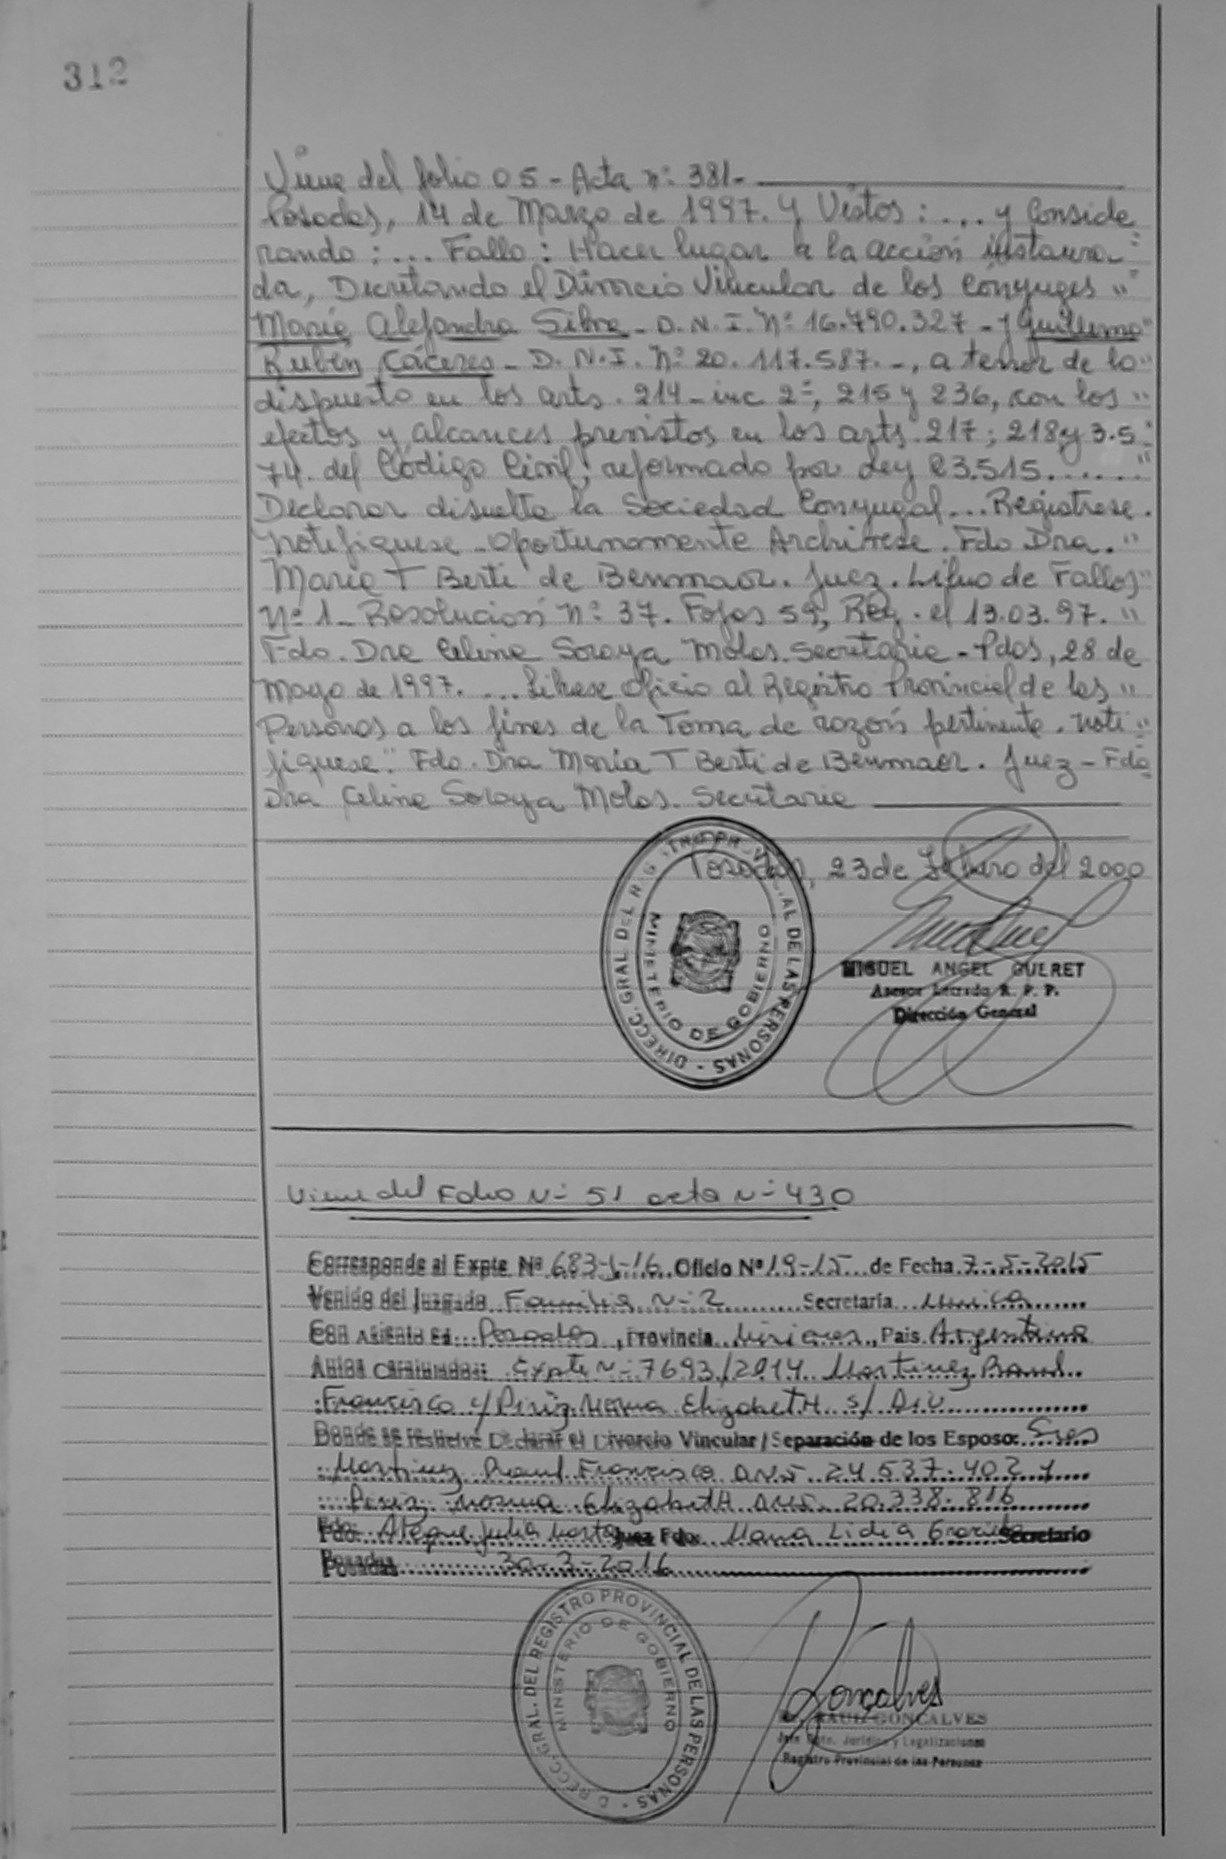 312
Viene del folio 05 - Acta nº 381-
Posadas, 14 de Marzo de 1997. Y Vistos: ... y Conside
rando: ... Fallo: Hacer lugar a la acción instaura"
da, Decretando el Divorcio Vincular de los Cónyuges "
María Alejandra Silva - D.N.I. Nº 16.790.327 - y Guillermo"
Rubén Cáceres - D.N.I. Nº 20.117.587.-, a tenor de lo"
dispuesto en los arts. 214 - inc 2º, 215 y 236, con los "
efectos y alcances previstos en los arts. 217; 218 y 3.5
74. del Código Civil, reformado por Ley 23.515......"
Declarar disuelta la Sociedad Conyugal... Regístrese.
Notifíquese - Oportunamente Archívese. Fdo Dra."
María T Berti de Benmaor. Juez. Libro de Fallos"
Nº 1 - Resolución Nº 37. Fojas 59, Reg. el 13.03.97. "
Fdo. Dra Celina Soraya Molas. Secretaria - Pdas, 28 de
Mayo de 1997. ... Líbrese Oficio al Registro Provincial de las "
Personas a los fines de la Toma de razón pertinente. Noti"
fíquese". Fdo. Dra María T Berti de Benmaor. Juez - Fdo
Dra Celina Soraya Molas. Secretaria
Posadas, 23 de Febrero del 2000
DIRECC. GRAL. DEL PROVINCIAL DE LAS PERSONAS -
MINISTERIO DE GOBIERNO
MIGUEL ANGEL GUERET
Asesor Letrado R. P. P.
Dirección General
Viene del Folio Nº 51 acta Nº 430
Corresponde al Expte Nº 683-J-16 Oficio Nº 19-15 de Fecha 7-5-2015
Venido del Juzgado Familia Nº 2 Secretaría Unica
Con Asiento en Posadas, Provincia Misiones, Pais Argentina
Autos Caratulados: Expte Nº 7693/2014 Martinez Raul
Francisco c/ Piriz Norma Elizabeth s/ Div
Donde se resuelve Declarar el Divorcio Vincular / Separación de los Esposo: Sres
Martinez Raul Francisco DNI 24 637.402 y
Piriz Norma Elizabeth DNI. 20.338.816
Fdo: Juez Fdo: Maria Lidia Secretario
Posadas 30-3-2016
DIRECC. GRAL. DEL REGISTRO PROVINCIAL DE LAS PERSONAS -
MINISTERIO DE GOBIERNO
Gonçalves
RAUL GONCALVES
Jefe Dpto. Jurídico y Legalizaciones
Registro Provincial de las Personas